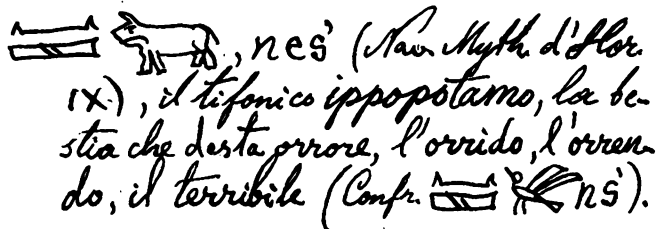 , neś (Nav. Myth. d'Hor.
IX.), il tifonico ippopotamo, la be-
stia che desta orrore, l'orrido, l'orren-
do, il terribile (Confr. nś).